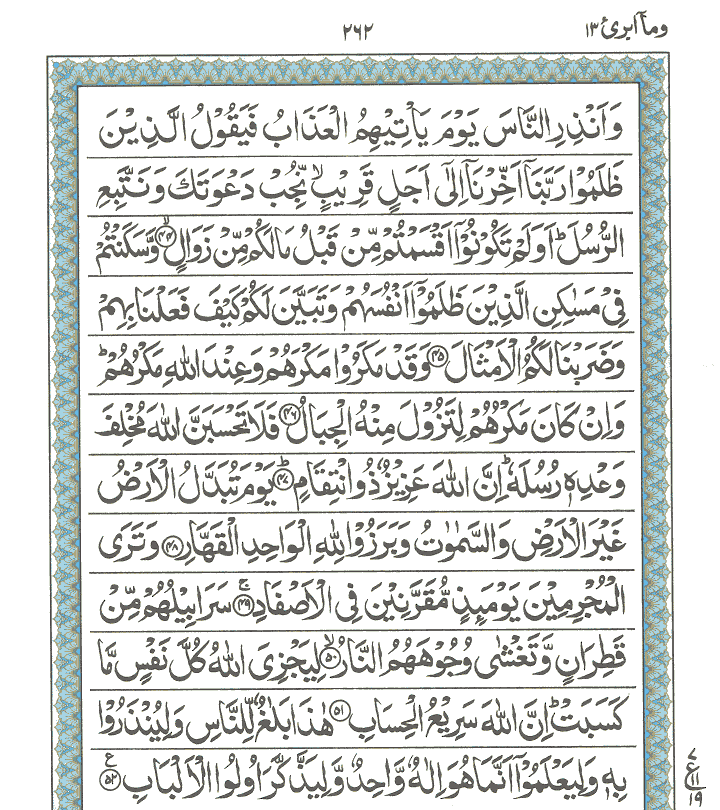 وماۤ ابرئ ١٣
٢٦٢
وَاَنْذِرِ النَّاسَ يَوْمَ يَاْتِيْهِمُ الْعَذَابُ فَيَقُوْلُ الَّذِيْنَ
ظَلَمُوْا رَبَّنَاۤ اَخِّرْنَاۤ اِلٰۤى اَجَلٍ قَرِيْبٍۙ نُّجِبْ دَعْوَتَكَ وَنَتَّبِعِ
الرُّسُلَؕ اَوَلَمْ تَكُوْنُوْۤا اَقْسَمْتُمْ مِّنْ قَبْلُ مَا لَكُمْ مِّنْ زَوَالٍۙ ﴿۴۴﴾ وَّسَكَنْتُمْ
فِيْ مَسٰكِنِ الَّذِيْنَ ظَلَمُوْۤا اَنْفُسَهُمْ وَتَبَيَّنَ لَكُمْ كَيْفَ فَعَلْنَا بِهِمْ
وَضَرَبْنَا لَكُمُ الْاَمْثَالَ ﴿۴۵﴾ وَقَدْ مَكَرُوْا مَكْرَهُمْ وَعِنْدَ اللّٰهِ مَكْرُهُمْؕ
وَاِنْ كَانَ مَكْرُهُمْ لِتَزُوْلَ مِنْهُ الْجِبَالُ ﴿۴۶﴾ فَلَا تَحْسَبَنَّ اللّٰهَ مُخْلِفَ
وَعْدِهٖ رُسُلَهٗؕ اِنَّ اللّٰهَ عَزِيْزٌ ذُو انْتِقَامٍؕ ﴿۴۷﴾ يَوْمَ تُبَدَّلُ الْاَرْضُ
غَيْرَ الْاَرْضِ وَالسَّمٰوٰتُ وَبَرَزُوْا لِلّٰهِ الْوَاحِدِ الْقَهَّارِ ﴿۴۸﴾ وَتَرَى
الْمُجْرِمِيْنَ يَوْمَئِذٍ مُّقَرَّنِيْنَ فِي الْاَصْفَادِۚ ﴿۴۹﴾ سَرَابِيْلُهُمْ مِّنْ
قَطِرَانٍ وَّتَغْشٰى وُجُوْهَهُمُ النَّارُۙ ﴿۵۰﴾ لِيَجْزِيَ اللّٰهُ كُلَّ نَفْسٍ مَّا
كَسَبَتْؕ اِنَّ اللّٰهَ سَرِيْعُ الْحِسَابِ ﴿۵۱﴾ هٰذَا بَلٰغٌ لِّلنَّاسِ وَلِيُنْذَرُوْا
بِهٖ وَلِيَعْلَمُوْۤا اَنَّمَا هُوَ اِلٰهٌ وَّاحِدٌ وَّلِيَذَّكَّرَ اُولُوا الْاَلْبَابِ ﴿۵۲﴾ ع
٧
ع
١١
١٩